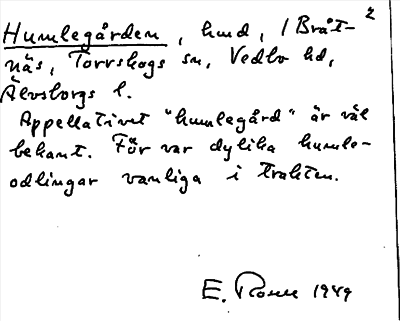 Humlegården, hmd, i Bråt- 2
näs, Torrskogs sn, Vedbo hd,
Älvsborgs l.
Appellativet "humlegård" är väl
bekant. Förr var dylika humle-
odlingar vanliga i trakten.
E. 1949